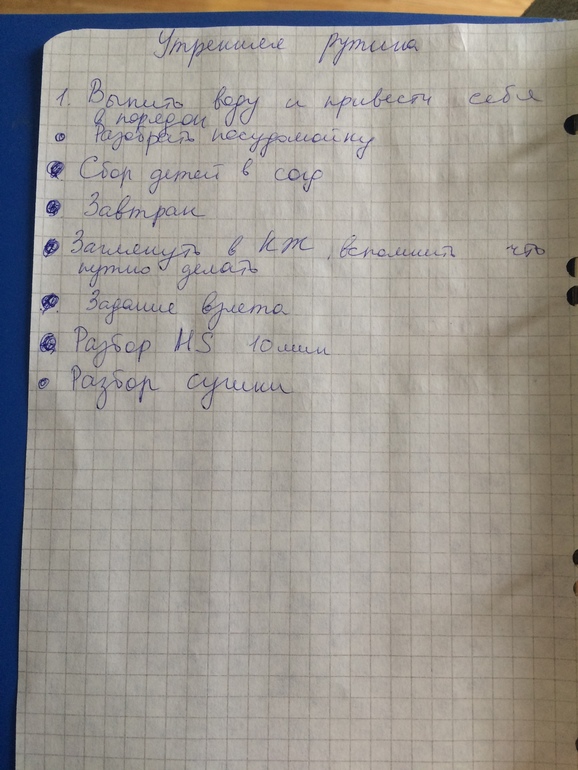 Утренняя рутина
1. Выпить воду и привести себя
в порядок
Разобрать посудомойку
Сбор детей в сад
Завтрак
Заглянуть в КЖ, вспомнить что
нужно делать
Задание взлета
Разбор HS 10 мин
Разбор сушки